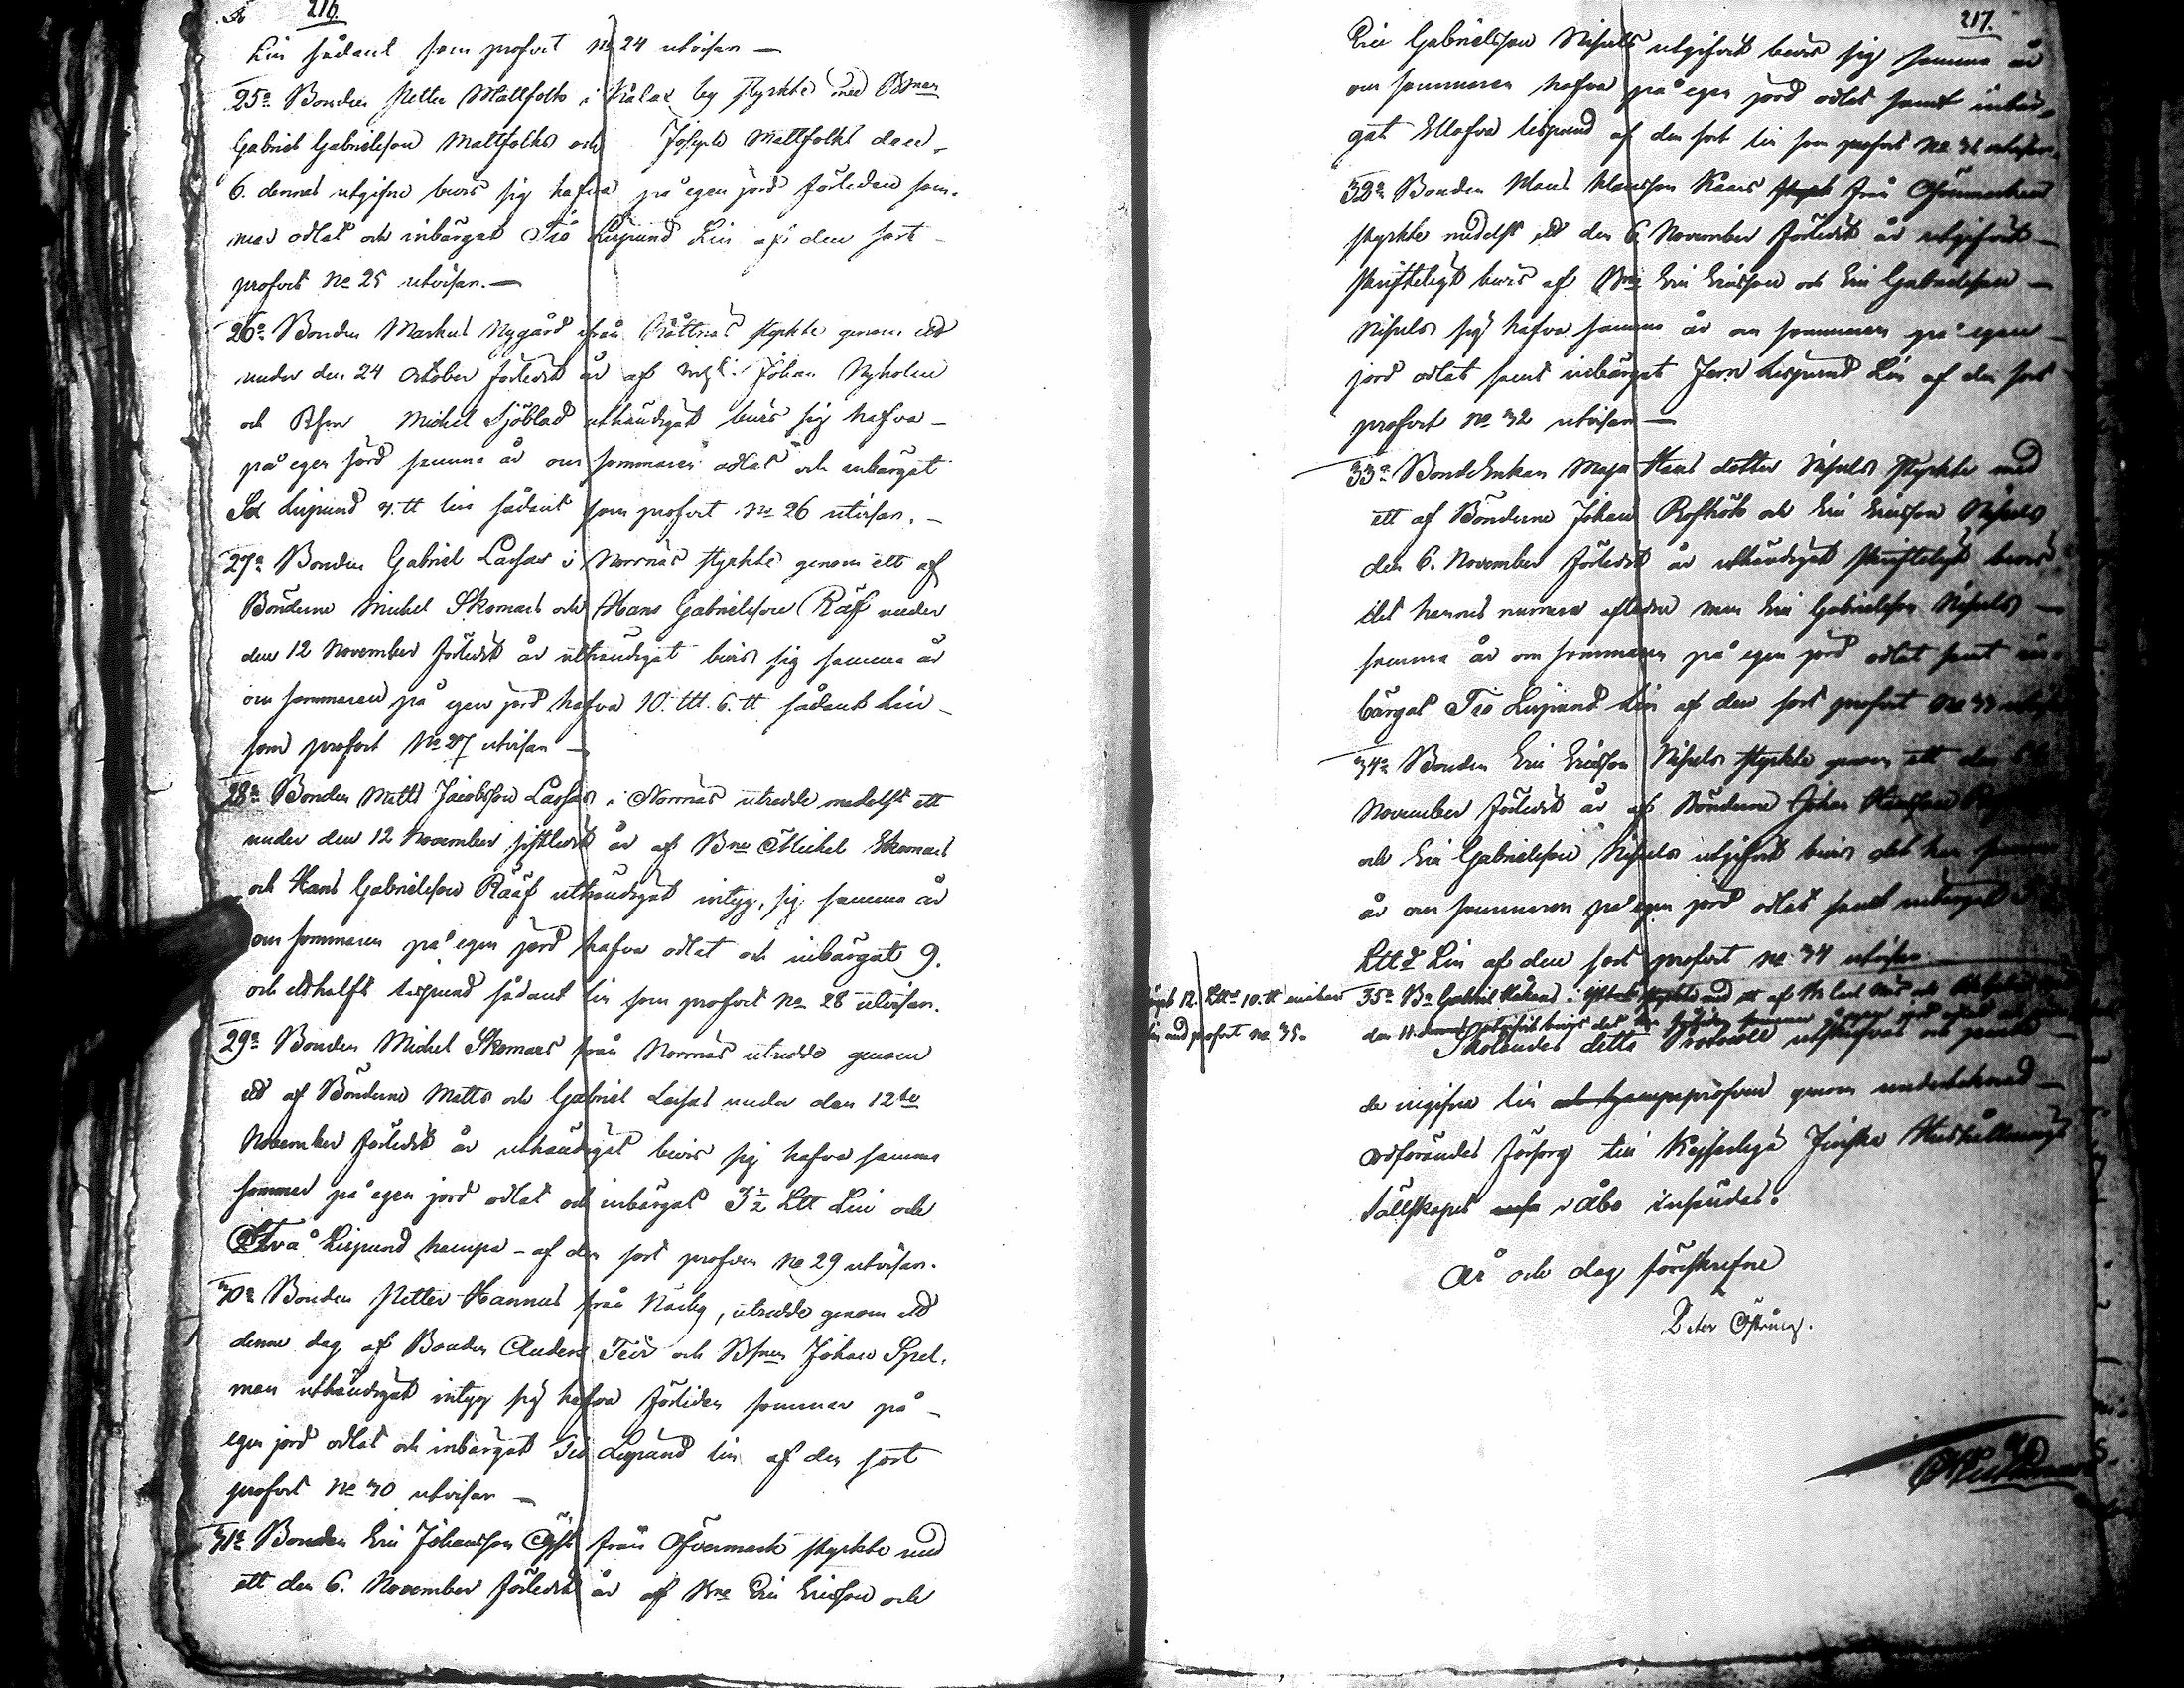 216.
Lin sådant som profvet No 24 utvisar —
25o Bonden Petter Mattfolk i Kalax by styrkte med Bsmen
Gabriel Gabrielsson Mattfolks och Joseph Mattfolks den
6. dennes utgifne bevis sig hafva på egen jord förliden som-
mar odlat och inbärgat Tio Lispund Lin af den sort
profvet No 25 utvisar. —
26o Bonden Markus Nygård från styrkte genom ett
under den 24 October förledit år af Johan Nyholm
och Bsm Michel Sjöblad uthändigat bevis sig hafva —
på egen jord samma år om sommaren odlat och inbärgat
Sex Lispund 4. tt lin sådant som profvet No 26 utvisar. —
27o Bonden Gabriel Lassas i Norrnäs styrkte genom ett af
Bönderne Michel Skomars och Hans Gabrielsson Rääf under
den 12 November förledit år uthändigat bevis sig samma år
om sommaren på egen jord hafva 10. Ltt. 6. tt sådant Lin —
som profvet No 27 utvisar —
28o Bonden Matts Jacobsson Lassas i Norrnäs utredde medelst ett
under den 12 November sistledit år af Bne Michel Skomars
och Hans Gabrielsson Rääf uthändigat intyg, sig samma år
om sommaren på egen jord hafva odlat och inbärgat 9.
och ett halft Lispund sådant lin som profvet No 28 utvisar.
29o Bonden Michel Skomars från Norrnäs utredde genom
ett af Bönderne Matts och Gabriel Lassas under den 12te
November förledit år uthändigat bevis sig hafva samma
sommar på egen jord odlat och inbärgat 3½ Ltt Lin och
Två Lispund hampa – af den sort profven No 29 utvisar.
30o Bonden Petter Hannus från Nääby, utredde genom ett
denne dag af Bonden Anders Teir och Bsmen Johan Spel-
man uthändigat intyg sig hafva förliden sommar på —
egen jord odlat och inbärgat Tio Lispund lin af den sort
profvet No 30 utvisar —
31o Bonden Eric Johansson från Öfvermark styrkte med
ett den 6. November förledit år af Bne Eric Ericsson och
217.
Eric Gabrielsson Nissils utgifvit bevis sig samma år
om sommaren hafva på egen jord odlat samt inbär-
gat Ellofva lispund af den sort lin som profvet No 31 utvisar.
32o Bonden Mans Mansson Kaars från Öfvermark
styrkte medelst ett den 6 November förledit år utgifvit —
skrifteligt bevis af Bne Eric Ericsson och Eric Gabrielsson —
Nissils sig hafva samma år om sommaren på egen —
jord odlat samt inbärgat Fem Lispund Lin af den sort
profvet No 32 utvisar —
33o Bonde Enkan Maja Hans dotter Nissils styrkte med
ett af Bönderne Johan och Eric Ericsson Nissils
den 6. November förledit år uthändigat skrifteligt bevis
det hennes numera aflidne man Eric Gabrielsson Nissils —
samma år om sommaren på egen jord odlat samt in-
bärgat Tio Lispund Lin af den sort profvet No 33
34o Bonden Eric Ericsson Nissils styrkte genom ett den 6
November förledit år af Bönderne Johan Hansson
och Eric Gabrielsson Nissils utgifvit bevis det han
år om sommaren på egen jord odlat samt inbärgat
Ltt Lin af den sort profvet No 34 utvisar —
35o Bn Gabriel Håkans i styrkte med ett af
den 11 utgifvit bevis det förliden sommar
12. Ltt 10. tt
lin med profvet No 35.
Skolandes detta Protocoll utskrifvas och jemte
de ingifne lin och hampeprofven genom undertecknad —
ordförandes försorg till Kejserliga Finska Hushållnings
Sällskapet i Åbo insändas.
År och dag förskrefne
Peter Östring.